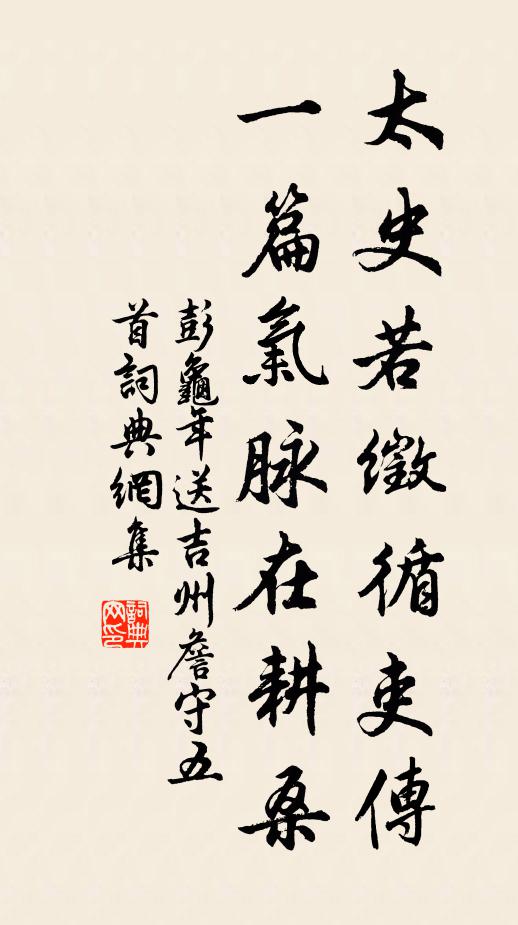 太史若徵循吏傳
一篇氣脉在耕桑
彭龜年送吉州詹守五
首詞典網集
詞典
网印